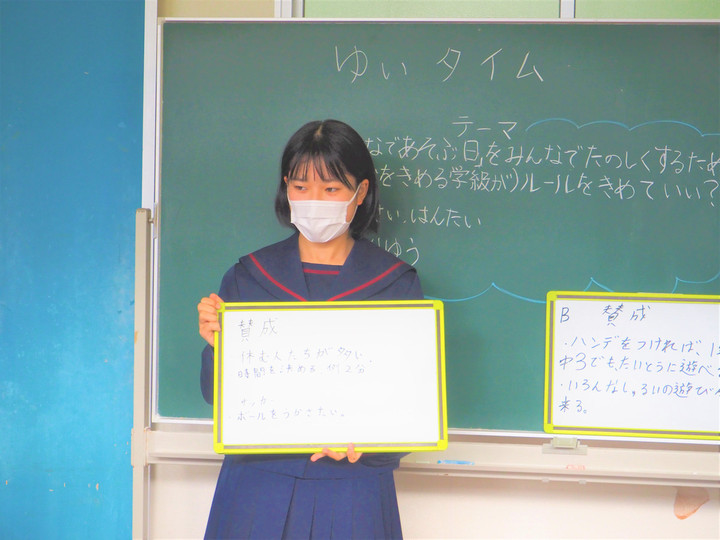 ゆいタイム
テーマ
なであそぶ日」をみんなでたのしくするため
をきめる学級が)ルールをきめていい?
さい、はんたい
りゆう
賛成
休む人たちが多い、
時間を決める
ボールをつかさたい。
B 賛成
・ハンデをつければ、
中3でも、たいとうに遊べ
・いろんなしゅるいの遊び
来る。